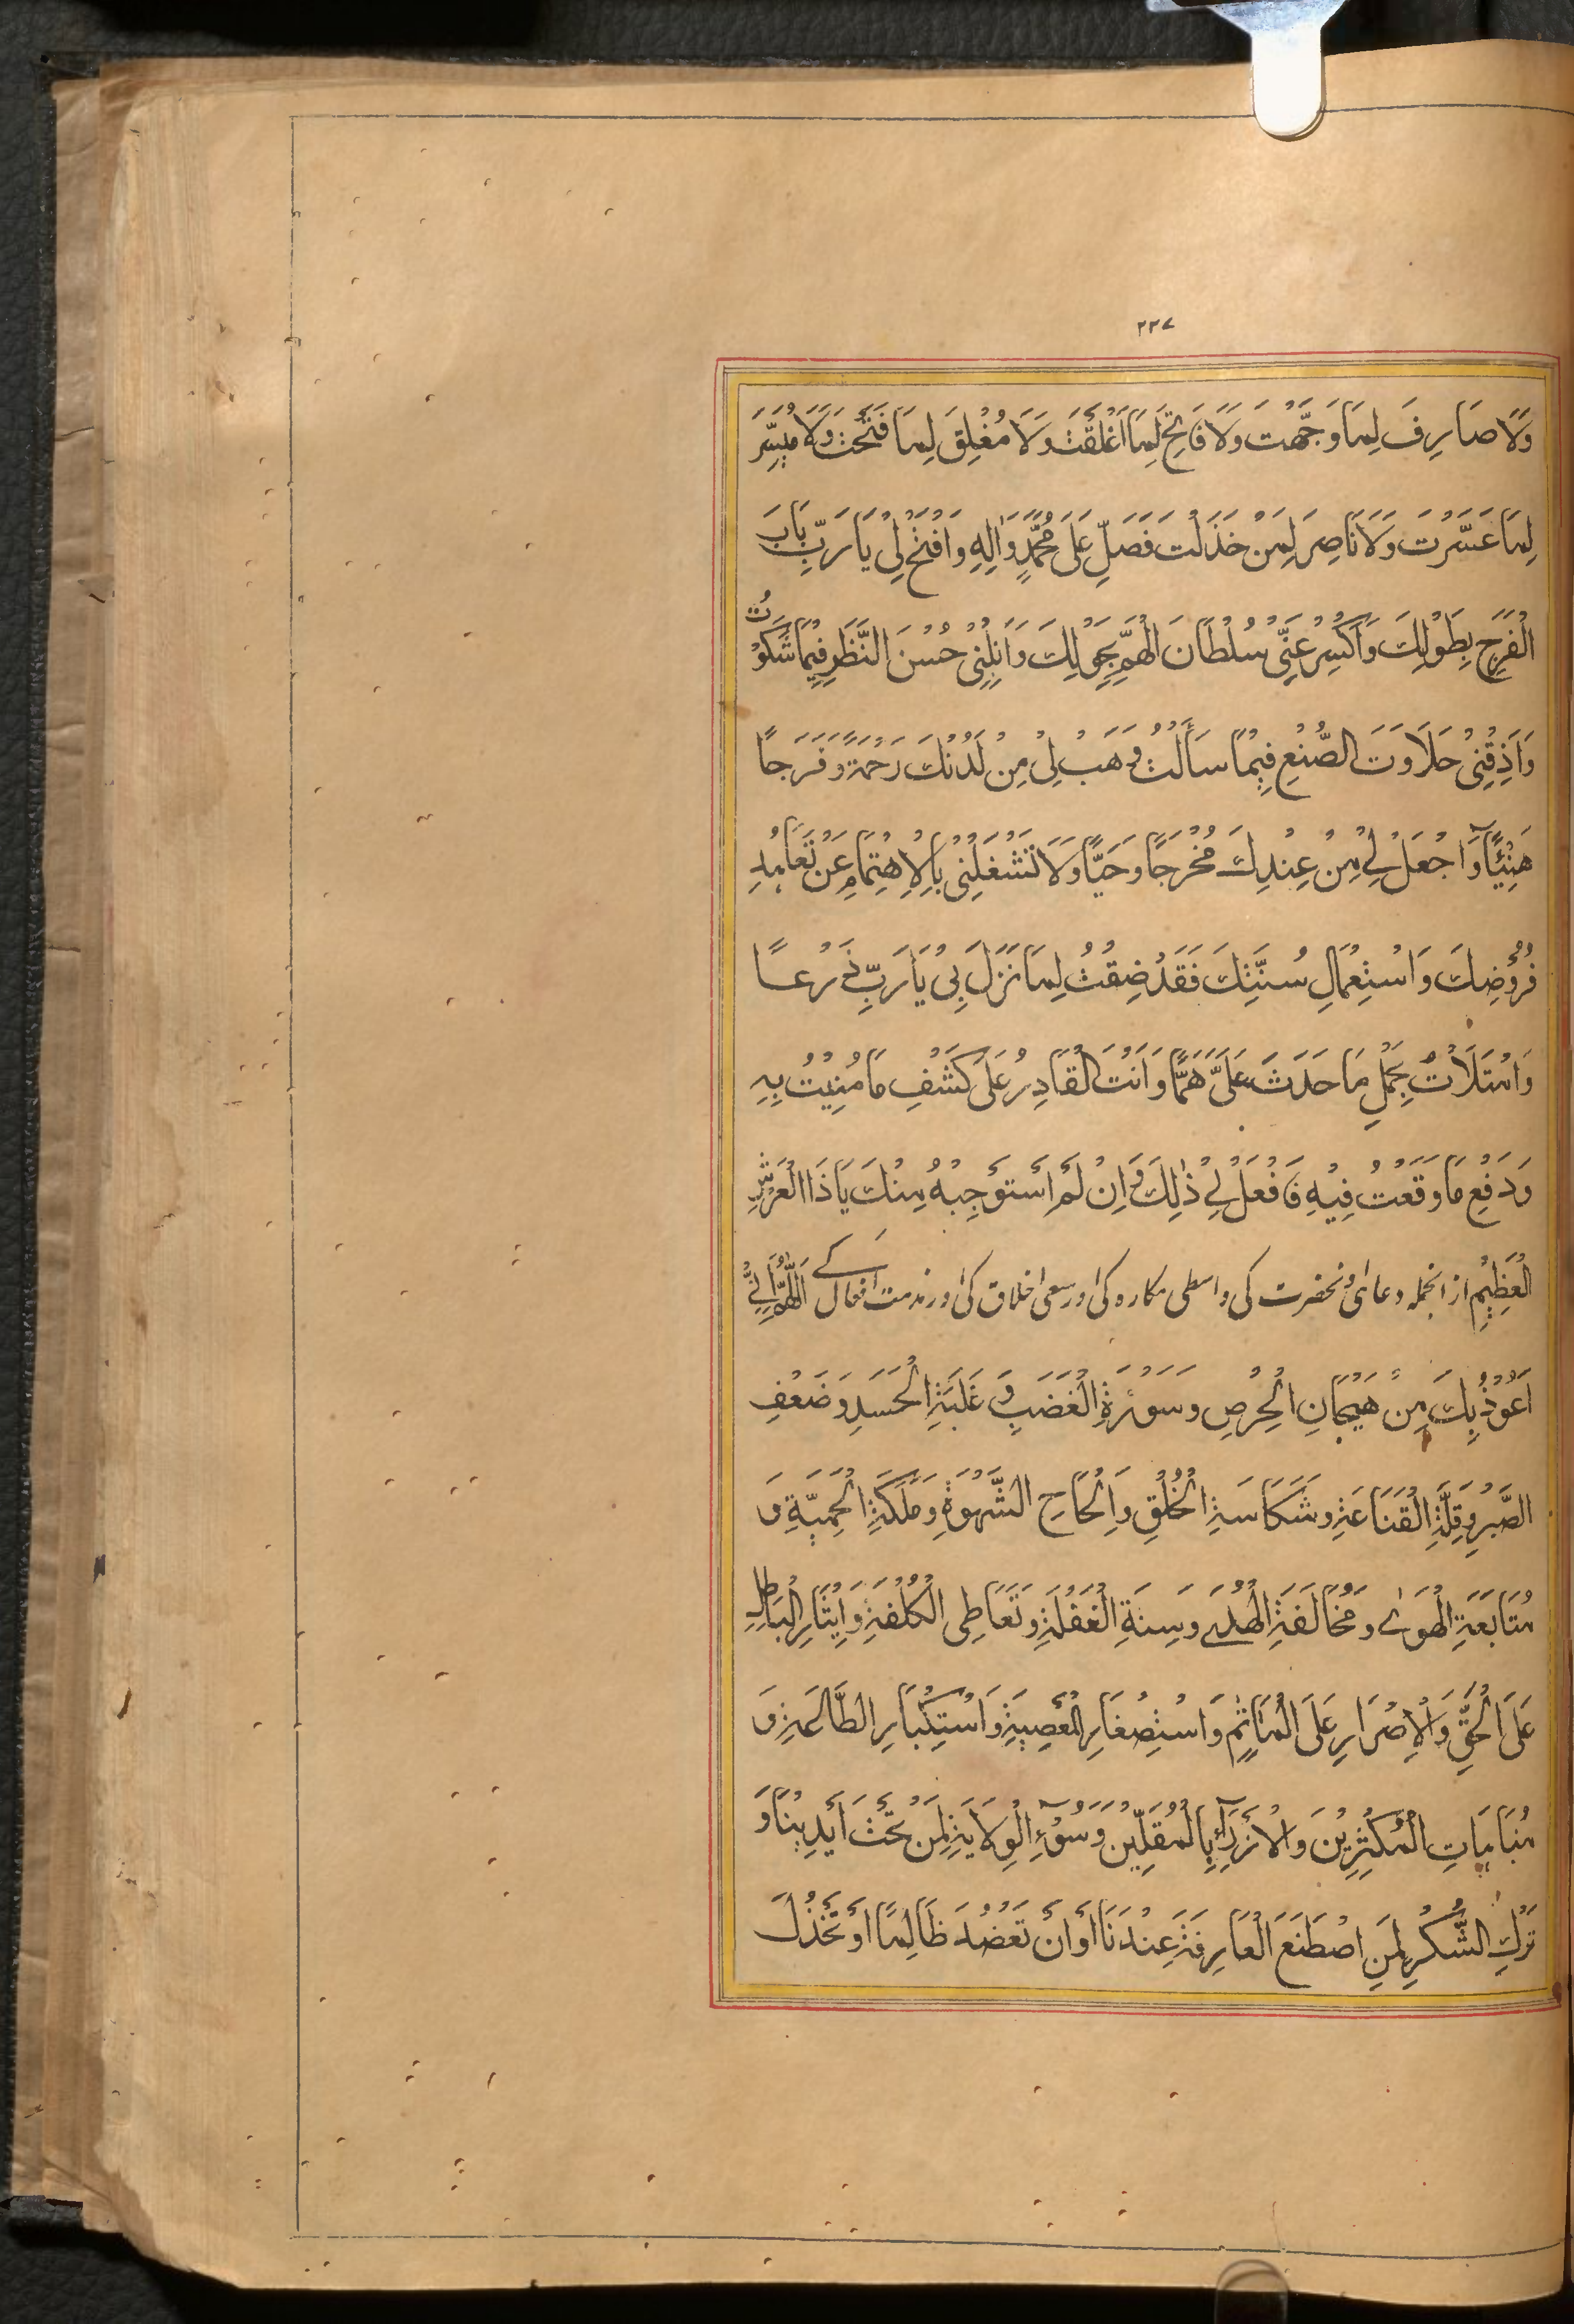 ۲۲۷
وَلَا صَارِفَ لِمَا وَجَّهْتَ وَلَا فَاتِحَ لِمَا اَغْلَقْتَ وَلَا مُغْلِقَ لِمَا فَتَحْتَ وَلَا مُيَسِّرَ
لِمَا عَسَّرْتَ وَلَا نَاصِرَ لِمَنْ خَذَلْتَ فَصَلِّ عَلَى مُحَمَّدٍ وَاٰلِهِ وَافْتَحْ لِیْ يَا رَبِّ بَابَ
الْفَرَجِ بِطَوْلِكَ وَاكْسِرْ عَنِّیْ سُلْطَانَ الْهَمِّ بِحَوْلِكَ وَاَنِلْنِیْ حُسْنَ النَّظَرِ فِيْمَا شَكَوْتُ
وَاَذِقْنِیْ حَلَاوَتَ الصُّنْعِ فِيْمَا سَأَلْتُ وَهَبْ لِیْ مِنْ لَدُنْكَ رَحْمَةً وَفَرَجًا
هَنِيْئًا وَاجْعَلْ لِیْ مِنْ عِنْدِكَ مَخْرَجًا وَحَيًّا وَلَا تَشْغَلْنِیْ بِالْاِهْتِمَامِ عَنْ تَعَاهُدِ
فُرُوْضِكَ وَاسْتِعْمَالِ سُنَّتِكَ فَقَدْ ضِقْتُ لِمَا نَزَلَ بِیْ يَا رَبِّ ذَرْعًا
وَامْتَلَأْتُ بِحَمْلِ مَا حَدَثَ عَلَیَّ هَمًّا وَاَنْتَ الْقَادِرُ عَلَى كَشْفِ مَا مُنِيْتُ بِهِ
وَدَفْعِ مَا وَقَعْتُ فِيْهِ فَافْعَلْ لِیْ ذٰلِكَ وَاِنْ لَمْ اَسْتَوْجِبْهُ مِنْكَ يَا ذَا الْعَرْشِ
الْعَظِيْمِ از انجمله دعائ آنحضرت کی واسطی مکاره کی اور سعی اخلاق کی اور مذمت افعال کے اَللّٰهُمَّ اِنِّیْ
اَعُوْذُ بِكَ مِنْ هَيَجَانِ الْحِرْصِ وَسَوْرَةِ الْغَضَبِ وَغَلَبَةِ الْحَسَدِ وَضَعْفِ
الصَّبْرِ وَقِلَّةِ الْقَنَاعَةِ وَشَكَاسَةِ الْخُلُقِ وَاِلْحَاحِ الشَّهْوَةِ وَمَلَكَةِ الْحَمِيَّةِ وَ
مُتَابَعَةِ الْهَوٰى وَمُخَالَفَةِ الْهُدٰى وَسِنَةِ الْغَفْلَةِ وَتَعَاطِی الْكُلْفَةِ وَاِيْثَارِ الْبَاطِلِ
عَلَى الْحَقِّ وَالْاِصْرَارِ عَلَى الْمَاٰثِمِ وَاسْتِصْغَارِ الْمَعْصِيَةِ وَاسْتِكْبَارِ الطَّاعَةِ وَ
مُبَاهَاتِ الْمُكْثِرِيْنَ وَالْاِزْرَآءِ بِالْمُقِلِّيْنَ وَسُوْءِ الْوِلَايَةِ لِمَنْ تَحْتَ اَيْدِيْنَا وَ
تَرْكِ الشُّكْرِ لِمَنِ اصْطَنَعَ الْعَارِفَةَ عِنْدَنَا اَوْ اَنْ نَعْضُدَ ظَالِمًا اَوْ نَخْذُلَ